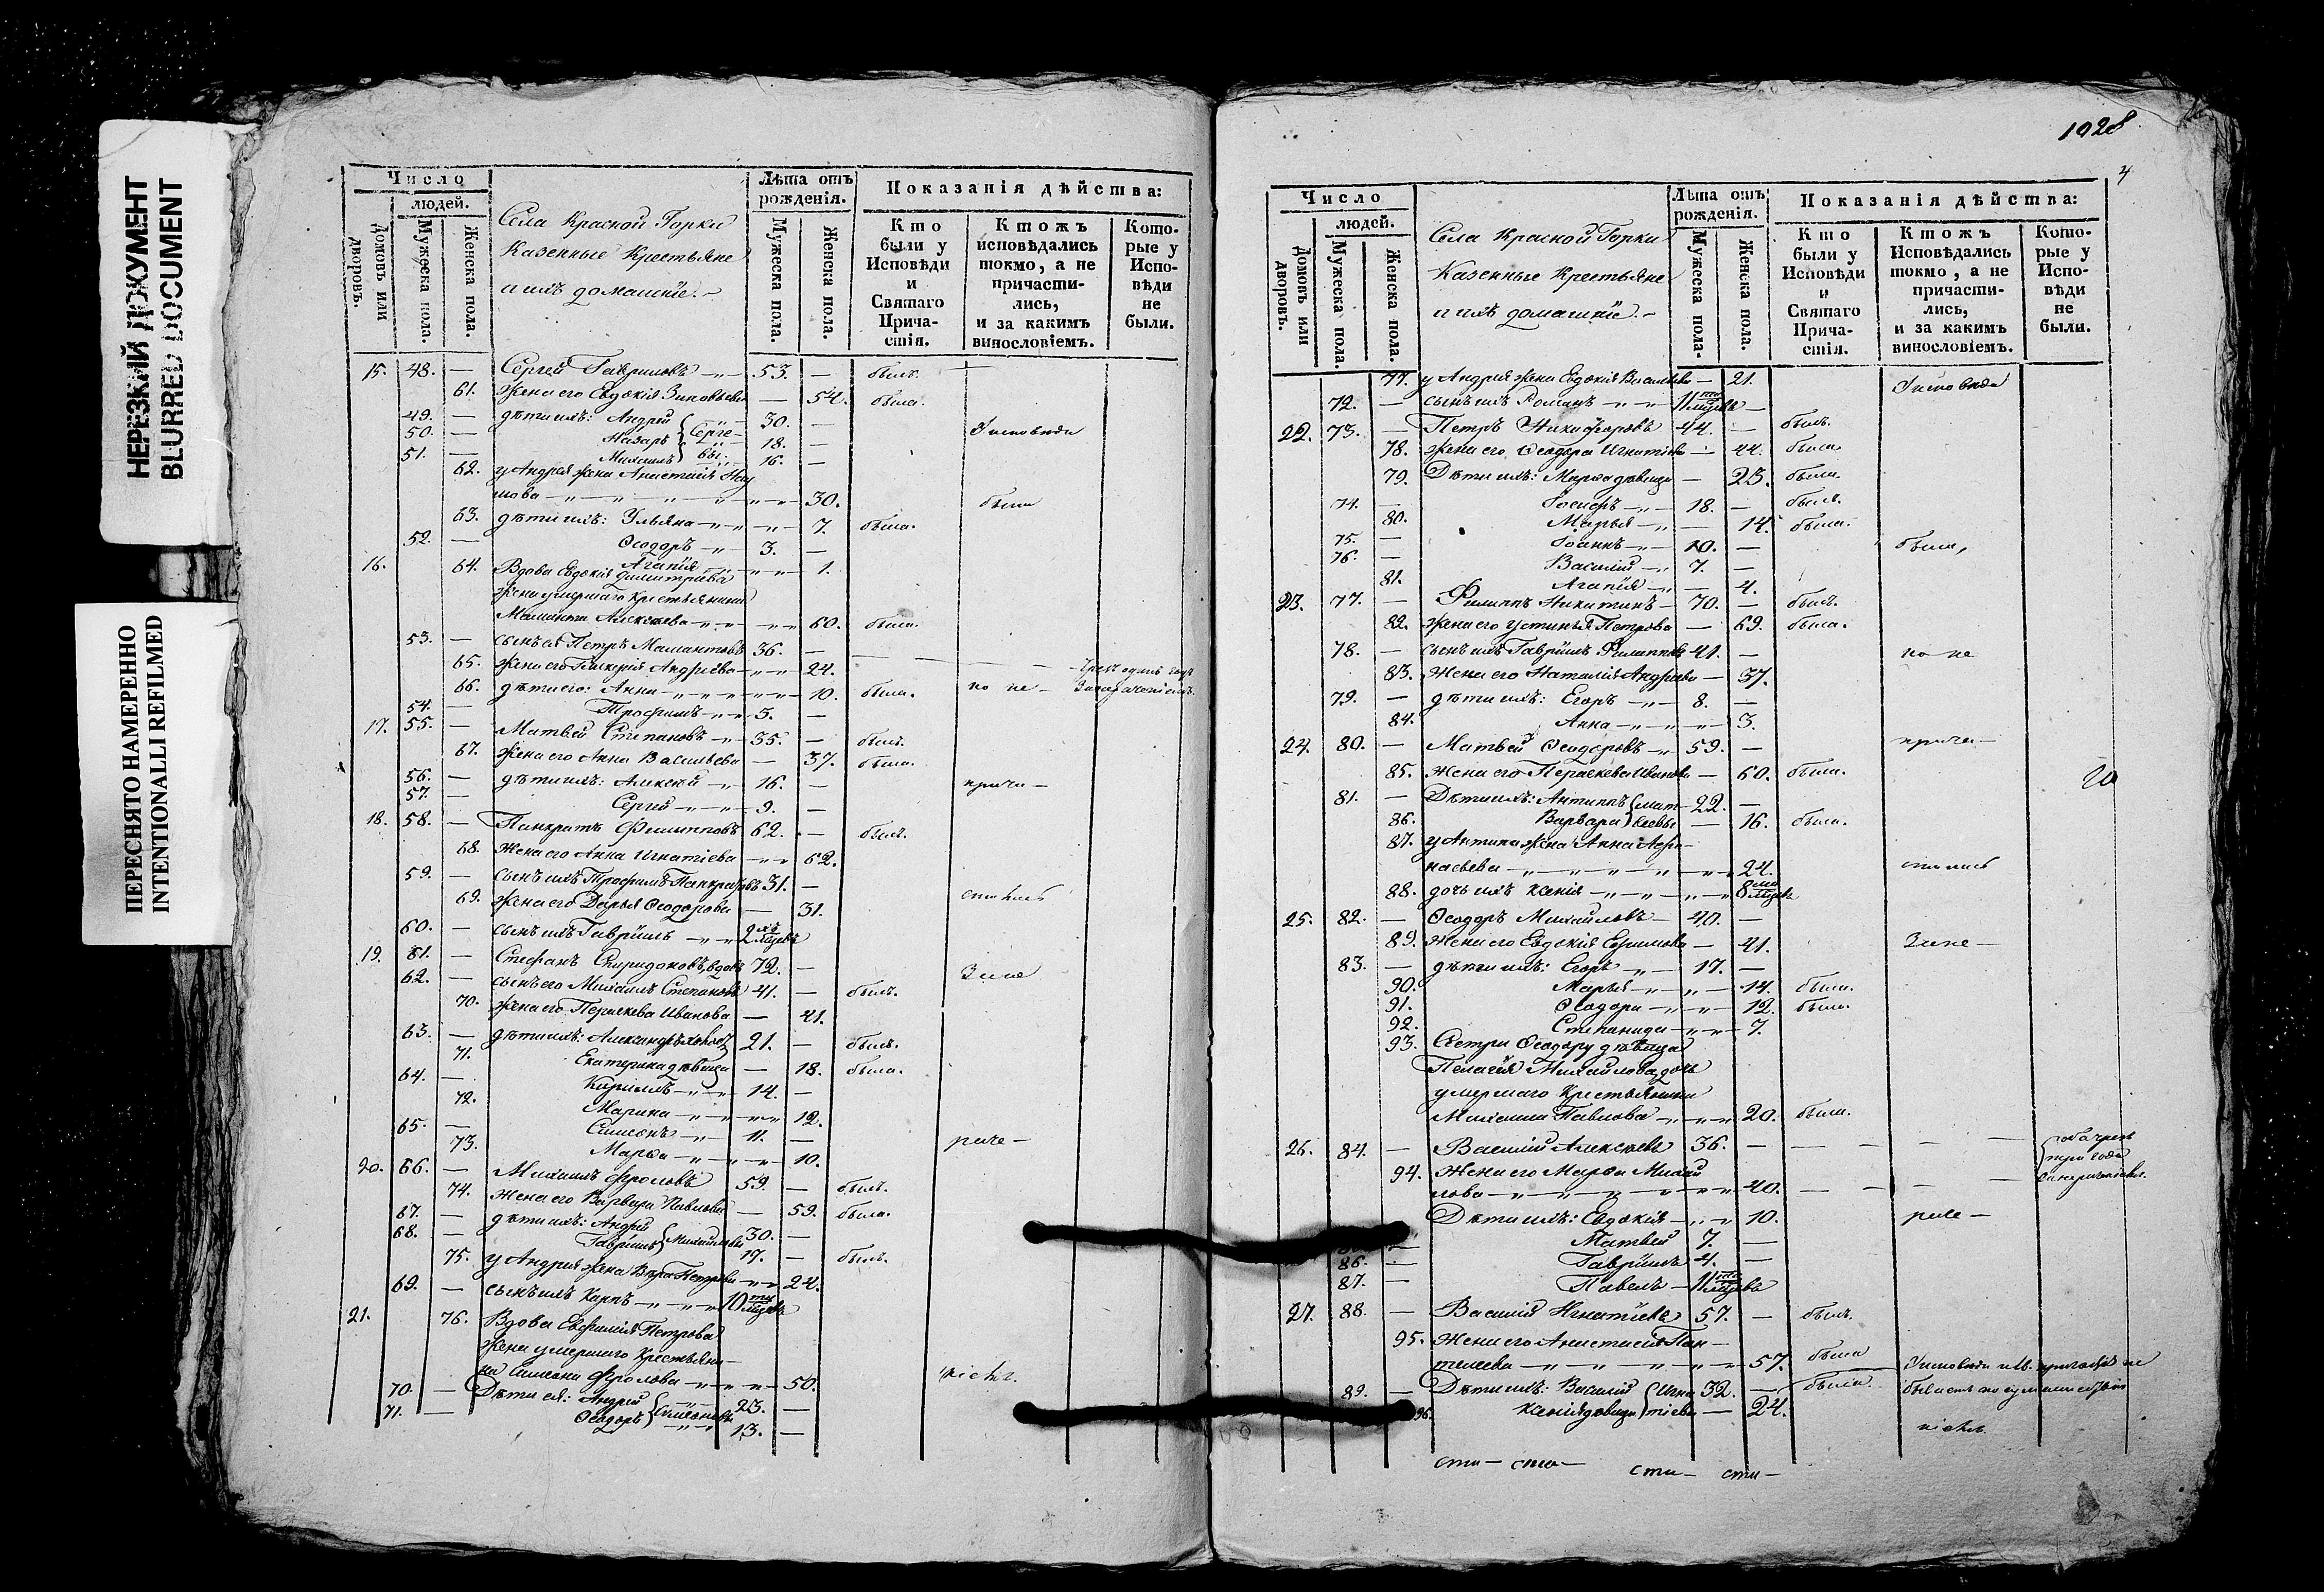 НЕРЕЗКИЙ ДОКУМЕНТ
BLURRED DOCUMENT
ПЕРЕСНЯТО НАМЕРЕННО
INTENTIONALLI REFILMED
Число
людей.
Домовъ или дворовъ.
Мужеска пола.
Женска пола.
Села Красной Горки
Казенные Крестьяне
и ихъ домашніе.
Лѣта отъ рожденія.
Мужеска пола.
Женска пола.
Показанія дѣйства:
Кто были у Исповѣди и Святаго Прича-стія.
Ктожъ исповѣдались токмо, а не причасти-лись, и за какимъ винословіемъ.
Кото-рые у Испо-вѣди не были.
15. 48. — Сергей Гавриловъ 53. — былъ.
61. Жена его Евдокія Зиновьева — 54. была.
49. — дѣти ихъ: Андрей 30. —
50. — Назаръ Серге- 18. — Исповѣди
51. — Михаилъ вы 16. —
62. у Андрея жена Анастасія Нау
мова 30. были
63. дѣти ихъ: Ульяна 7. была.
52. — Ѳеодоръ 3. —
Агапія 1.
16. 64. Вдова Евдокія Димитріева
жена умершаго крестьянина
Маманта Алексѣева 60. была.
53. — сынъ ея Петръ Мамантовъ 36. —
65. жена его Андреева 24.
66. дѣти его: Анна 10. была. но не
54. — Трофимъ 5. —
17. 55. — Матвей Степановъ 35. — былъ.
67. жена его Анна Васильева — 37. была.
56. — дѣти ихъ: Алексей 16. — прича-
57. — Сергей 9. —
18. 58. — Панкратъ Филипповъ 62. — былъ.
68. Жена его Анна Игнатіева 62.
59. — сынъ ихъ Трофимъ Панкратовъ 31. —
69. жена его Дарья Ѳеодорова — 31. стились
60. — сынъ ихъ Гавріилъ 2хъ мцевъ
19. 61. — Стефанъ Спиридоновъ, вдовъ 72. —
62. — сынъ его Михаилъ Степановъ 41. — былъ. Зане
70. жена его Параскева Иванова — 41.
63. — дѣти ихъ: Александръ холост 21. — былъ.
71. Екатерина дѣвица — 18. была.
64. — Кириллъ 14. —
72. Марина 12.
65. — Симеонъ 11. —
73. Марѳа 10. раче-
20. 66. — Михаилъ Фроловъ 59. — былъ.
74. Жена его Варвара Павлова — 59. была.
67. — дѣти ихъ: Андрей 30. —
68. — Гавріилъ Михайловы 17. — былъ.
75. у Андрея жена Вера Петрова 24.
69. — сынъ ихъ Карпъ 10ти мцевъ
21. 76. Вдова Евфимія Петрова
жена умершаго Крестьяни-
на Симеона Фролова 50. ніемъ.
70. — Дѣти ея: Андрей 23. —
71. — Ѳеодоръ Симеоновы 13. —
1028
4
Число
людей.
Домовъ или дворовъ.
Мужеска пола.
Женска пола.
Села Красной Горки
Казенные Крестьяне
и ихъ домашніе.
Лѣта отъ рожденія.
Мужеска пола.
Женска пола.
Показанія дѣйства:
Кто были у Исповѣди и Святаго Прича-стія.
Ктожъ Исповѣдались токмо, а не причасти-лись, и за какимъ винословіемъ.
Кото-рые у Испо-вѣди не были.
77. у Андрея жена Евдокія Васильева — 21. Исповѣди
72. — сынъ ихъ Романъ 11ти мцевъ —
22. 73. — Петръ Никифоровъ 44. — былъ.
78. жена его Ѳеодора Игнатіева — 44. была.
79. Дѣти ихъ: Марѳа дѣвица — 23. была.
74. — Іосифъ 18. — былъ.
80. Марья — 14. была.
75. — Іоаннъ 10. — были,
76. — Василій 7. —
81. Агапія — 4.
23. 77. — Филиппъ Никитинъ 70. — былъ.
82. жена его Устинья Петрова — 69. была.
78. — сынъ ихъ Гавріилъ Филипповъ 41. — но не
83. Жена его Наталія Андреева — 37.
79. — дѣти ихъ: Егоръ 8. —
84. Анна 3.
24. 80. — Матвей Ѳеодоровъ 59. — прича-
85. Жена его Параскева Иванова — 60. была.
20
81. — Дѣти ихъ: Антиппъ Мат- 22. —
86. Варвара вѣевы — 16. была.
87. у Антипа жена Анна Аѳа-
насьева 24. стились
88. дочь ихъ Ксенія 8ми мцевъ
25. 82. — Ѳеодоръ Михайловъ 40. —
89. Жена его Евдокія Ефимова — 41. Зане-
83. — дѣти ихъ: Егоръ 17. —
90. Марья 14. была.
91. Ѳеодора 12. была.
92. Степанида 7.
93. Сестра Ѳеодору дѣвица
Пелагія Михайлова дочь
умершаго Крестьянина
Михаила Павлова 20. была.
26. 84. — Василій Алексѣевъ 36. — оба чрезъ
94. Жена его Марѳа Михай три года
лова 40.
Дѣти ихъ: Евдокія 10. раче-
Матвей 7. —
86. — Гавріилъ 4. —
87. — Павелъ 11ти мцевъ
27. 88. — Василій Игнатіевъ 57. — былъ.
95. Жена его Анастасія Пан-
телеева 57. была
89. — Дѣти ихъ: Василій Игна- 32. —
96. Ксенія дѣвица тіевы — 24. была.
ніемъ.
сти- сти- сти- сти-